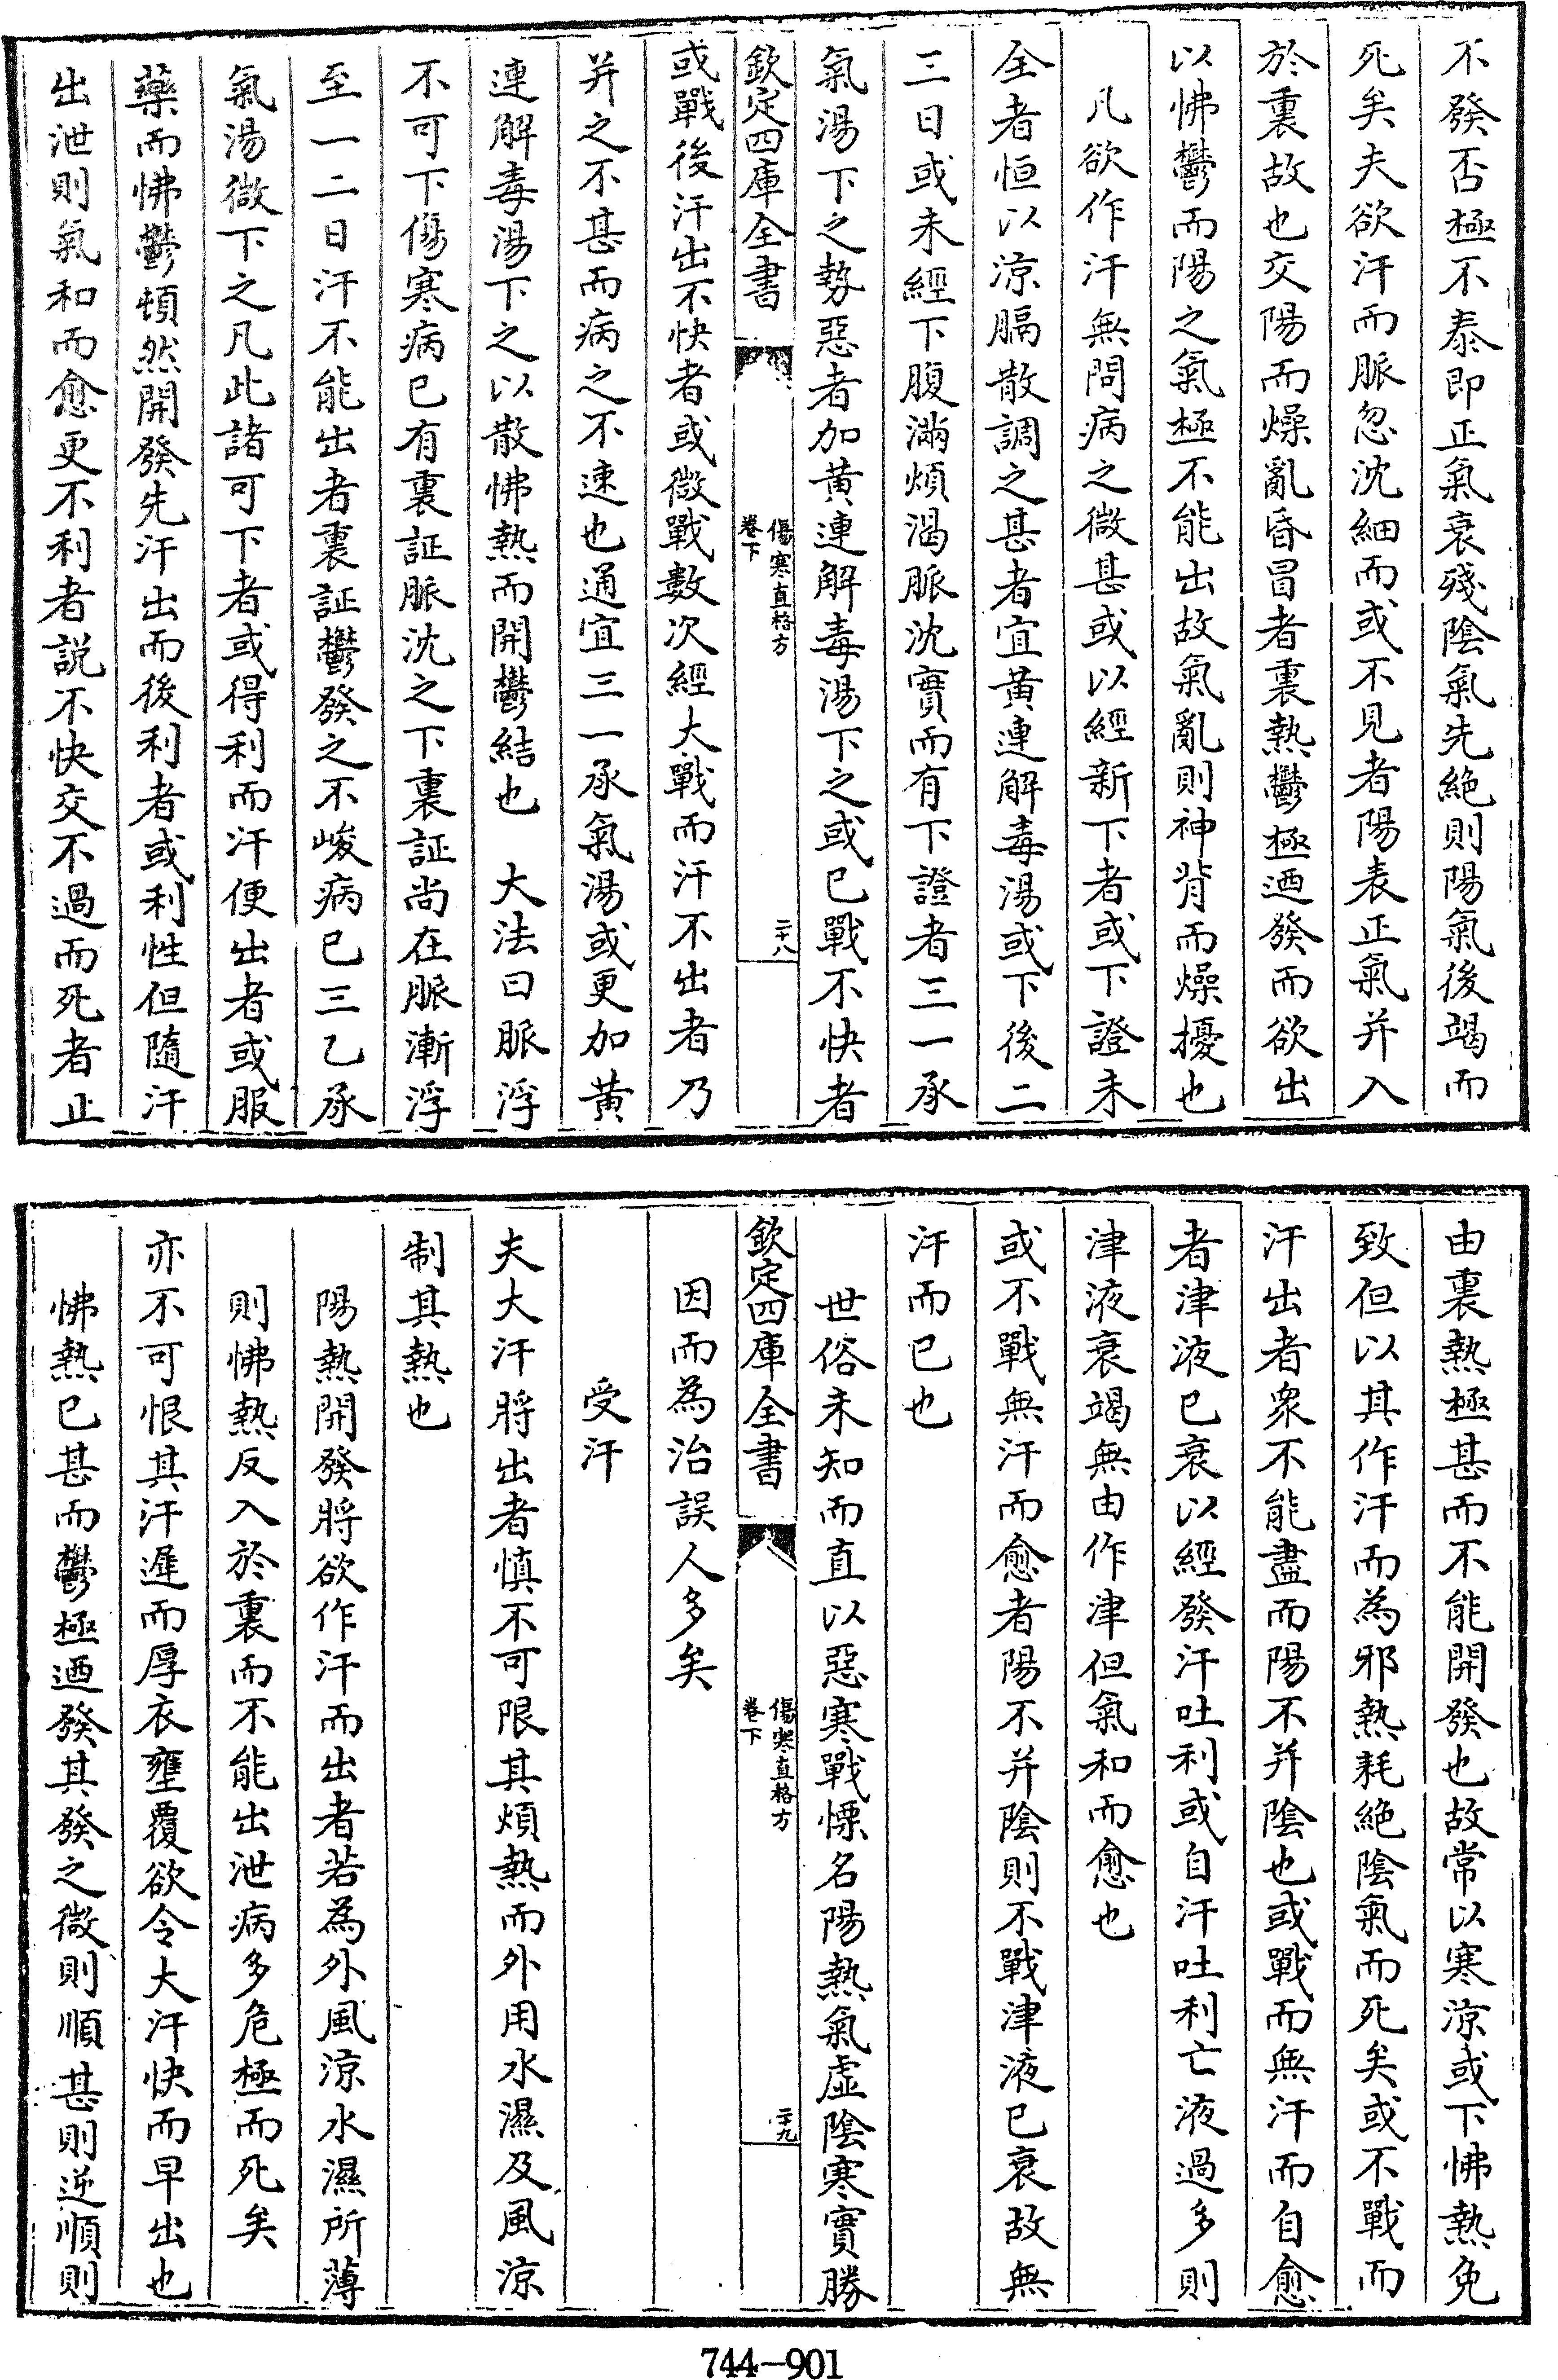 不發否極不泰即正氣衰殘陰氣先絶則陽氣後竭而
死矣夫欲汗而脈忽沈細而或不見者陽表正氣并入
於裏故也交陽而燥亂昏冒者裏熱鬱極迺發而欲出
以怫鬱而陽之氣極不能出故氣亂則神背而燥擾也
凡欲作汗無問病之微甚或以經新下者或下證未
全者恒以涼膈散調之甚者宜黄連解毒湯或下後二
三日或未經下腹滿煩渴脈沈實而有下證者三一承
氣湯下之勢惡者加黄連解毒湯下之或已戰不快者
欽定四庫全書
傷寒直格方
卷下
二十八
或戰後汗出不快者或微戰數次經大戰而汗不出者乃
并之不甚而病之不速也通宜三一承氣湯或更加黄
連解毒湯下之以散怫熱而開鬱結也 大法曰脈浮
不可下傷寒病已有裏証脈沈之下裏証尚在脈漸浮
至一二日汗不能出者裏証鬱發之不峻病已三乙承
氣湯微下之凡此諸可下者或得利而汗便出者或服
藥而怫鬱頓然開發先汗出而後利者或利性但隨汗
出泄則氣和而愈更不利者説不快交不過而死者止
由裏熱極甚而不能開發也故常以寒涼或下怫熱免
致但以其作汗而為邪熱耗絶陰氣而死矣或不戰而
汗出者衆不能盡而陽不并陰也或戰而無汗而自愈
者津液已衰以經發汗吐利或自汗吐利亡液過多則
津液衰竭無由作津但氣和而愈也
或不戰無汗而愈者陽不并陰則不戰津液已衰故無
汗而已也
世俗未知而直以惡寒戰慄名陽熱氣虛陰寒實勝
欽定四庫全書
傷寒直格方
卷下
二十九
因而為治誤人多矣
受汗
夫大汗將出者慎不可限其煩熱而外用水濕及風涼
制其熱也
陽熱開發將欲作汗而出者若為外風涼水濕所薄
則怫熱反入於裏而不能出泄病多危極而死矣
亦不可恨其汗遲而厚衣壅覆欲令大汗快而早出也
怫熱已甚而鬱極迺發其發之微則順甚則逆順則
744-901